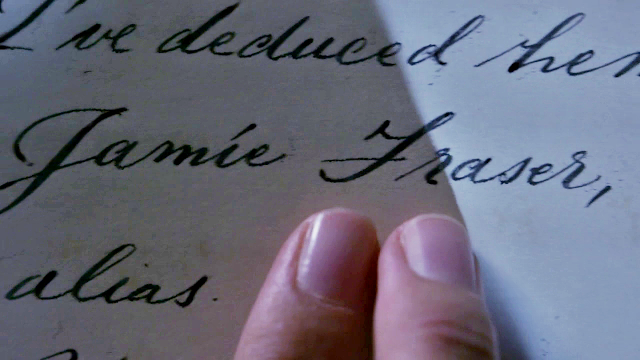 I've deduced
Jamie Fraser,
alias.